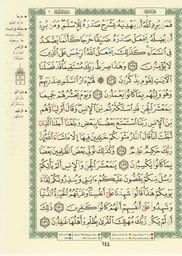 فَمَن يُرِدِ ٱللَّهُ أَن يَهْدِيَهُۥ يَشْرَحْ صَدْرَهُۥ لِلْإِسْلَٰمِ وَمَن يُرِدْ
أَن يُضِلَّهُۥ يَجْعَلْ صَدْرَهُۥ ضَيِّقًا حَرَجًا كَأَنَّمَا يَصَّعَّدُ
فِى ٱلسَّمَآءِ كَذَٰلِكَ يَجْعَلُ ٱللَّهُ ٱلرِّجْسَ عَلَى ٱلَّذِينَ
لَا يُؤْمِنُونَ ١٢٥ وَهَٰذَا صِرَٰطُ رَبِّكَ مُسْتَقِيمًا قَدْ فَصَّلْنَا
ٱلْءَايَٰتِ لِقَوْمٍ يَذَّكَّرُونَ ١٢٦ لَهُمْ دَارُ ٱلسَّلَٰمِ عِندَ رَبِّهِمْ
وَهُوَ وَلِيُّهُم بِمَا كَانُوا۟ يَعْمَلُونَ ١٢٧ وَيَوْمَ يَحْشُرُهُمْ جَمِيعًا
يَٰمَعْشَرَ ٱلْجِنِّ قَدِ ٱسْتَكْثَرْتُم مِّنَ ٱلْإِنسِ وَقَالَ أَوْلِيَآؤُهُم
مِّنَ ٱلْإِنسِ رَبَّنَا ٱسْتَمْتَعَ بَعْضُنَا بِبَعْضٍ وَبَلَغْنَآ أَجَلَنَا
ٱلَّذِىٓ أَجَّلْتَ لَنَا قَالَ ٱلنَّارُ مَثْوَىٰكُمْ خَٰلِدِينَ فِيهَآ إِلَّا مَا شَآءَ ٱللَّهُ
إِنَّ رَبَّكَ حَكِيمٌ عَلِيمٌ ١٢٨ وَكَذَٰلِكَ نُوَلِّى بَعْضَ ٱلظَّٰلِمِينَ بَعْضًۢا
بِمَا كَانُوا۟ يَكْسِبُونَ ١٢٩ يَٰمَعْشَرَ ٱلْجِنِّ وَٱلْإِنسِ أَلَمْ يَأْتِكُمْ
رُسُلٌ مِّنكُمْ يَقُصُّونَ عَلَيْكُمْ ءَايَٰتِى وَيُنذِرُونَكُمْ لِقَآءَ
يَوْمِكُمْ هَٰذَا قَالُوا۟ شَهِدْنَا عَلَىٰٓ أَنفُسِنَا وَغَرَّتْهُمُ ٱلْحَيَوٰةُ ٱلدُّنْيَا
وَشَهِدُوا۟ عَلَىٰٓ أَنفُسِهِمْ أَنَّهُمْ كَانُوا۟ كَٰفِرِينَ ١٣٠
ذَٰلِكَ أَن لَّمْ يَكُن رَّبُّكَ مُهْلِكَ ٱلْقُرَىٰ بِظُلْمٍ وَأَهْلُهَا غَٰفِلُونَ ١٣١
١٤٤